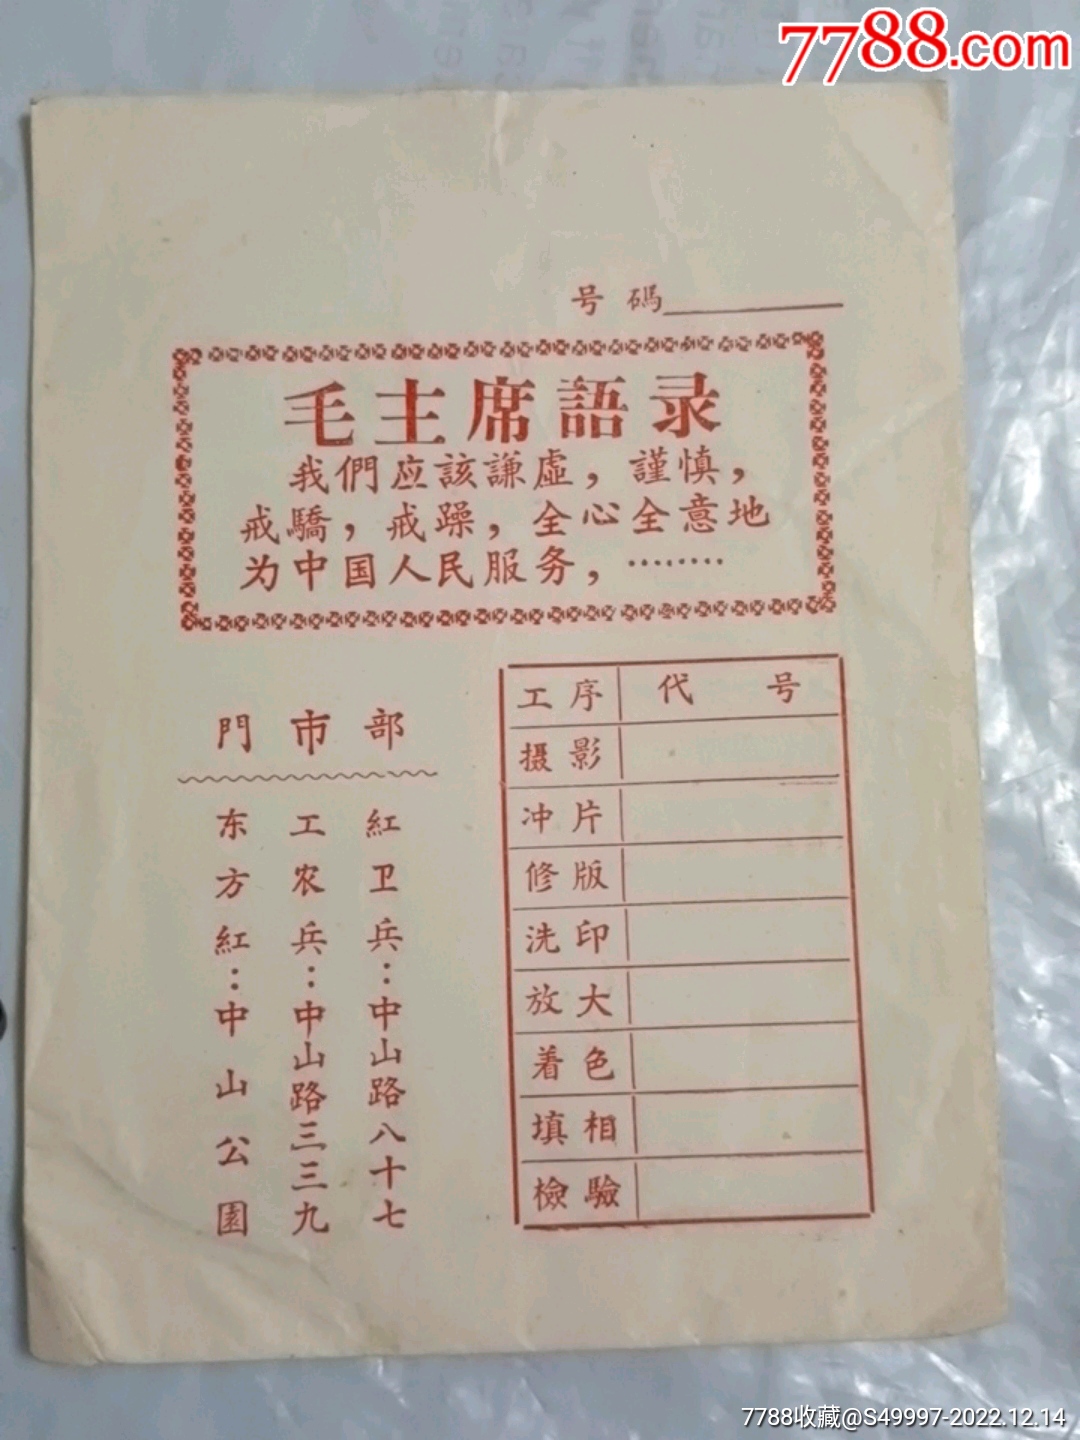 7788.com
号碼
毛主席語录
我們应該謙虛，謹慎，
戒驕，戒躁，全心全意地
为中国人民服务，………
門市部
紅卫兵：中山路八十七
工农兵：中山路三三九
东方紅：中山公園
工序 代号
摄影
冲片
修版
洗印
放大
着色
填相
檢驗
7788收藏@S49997-2022.12.14